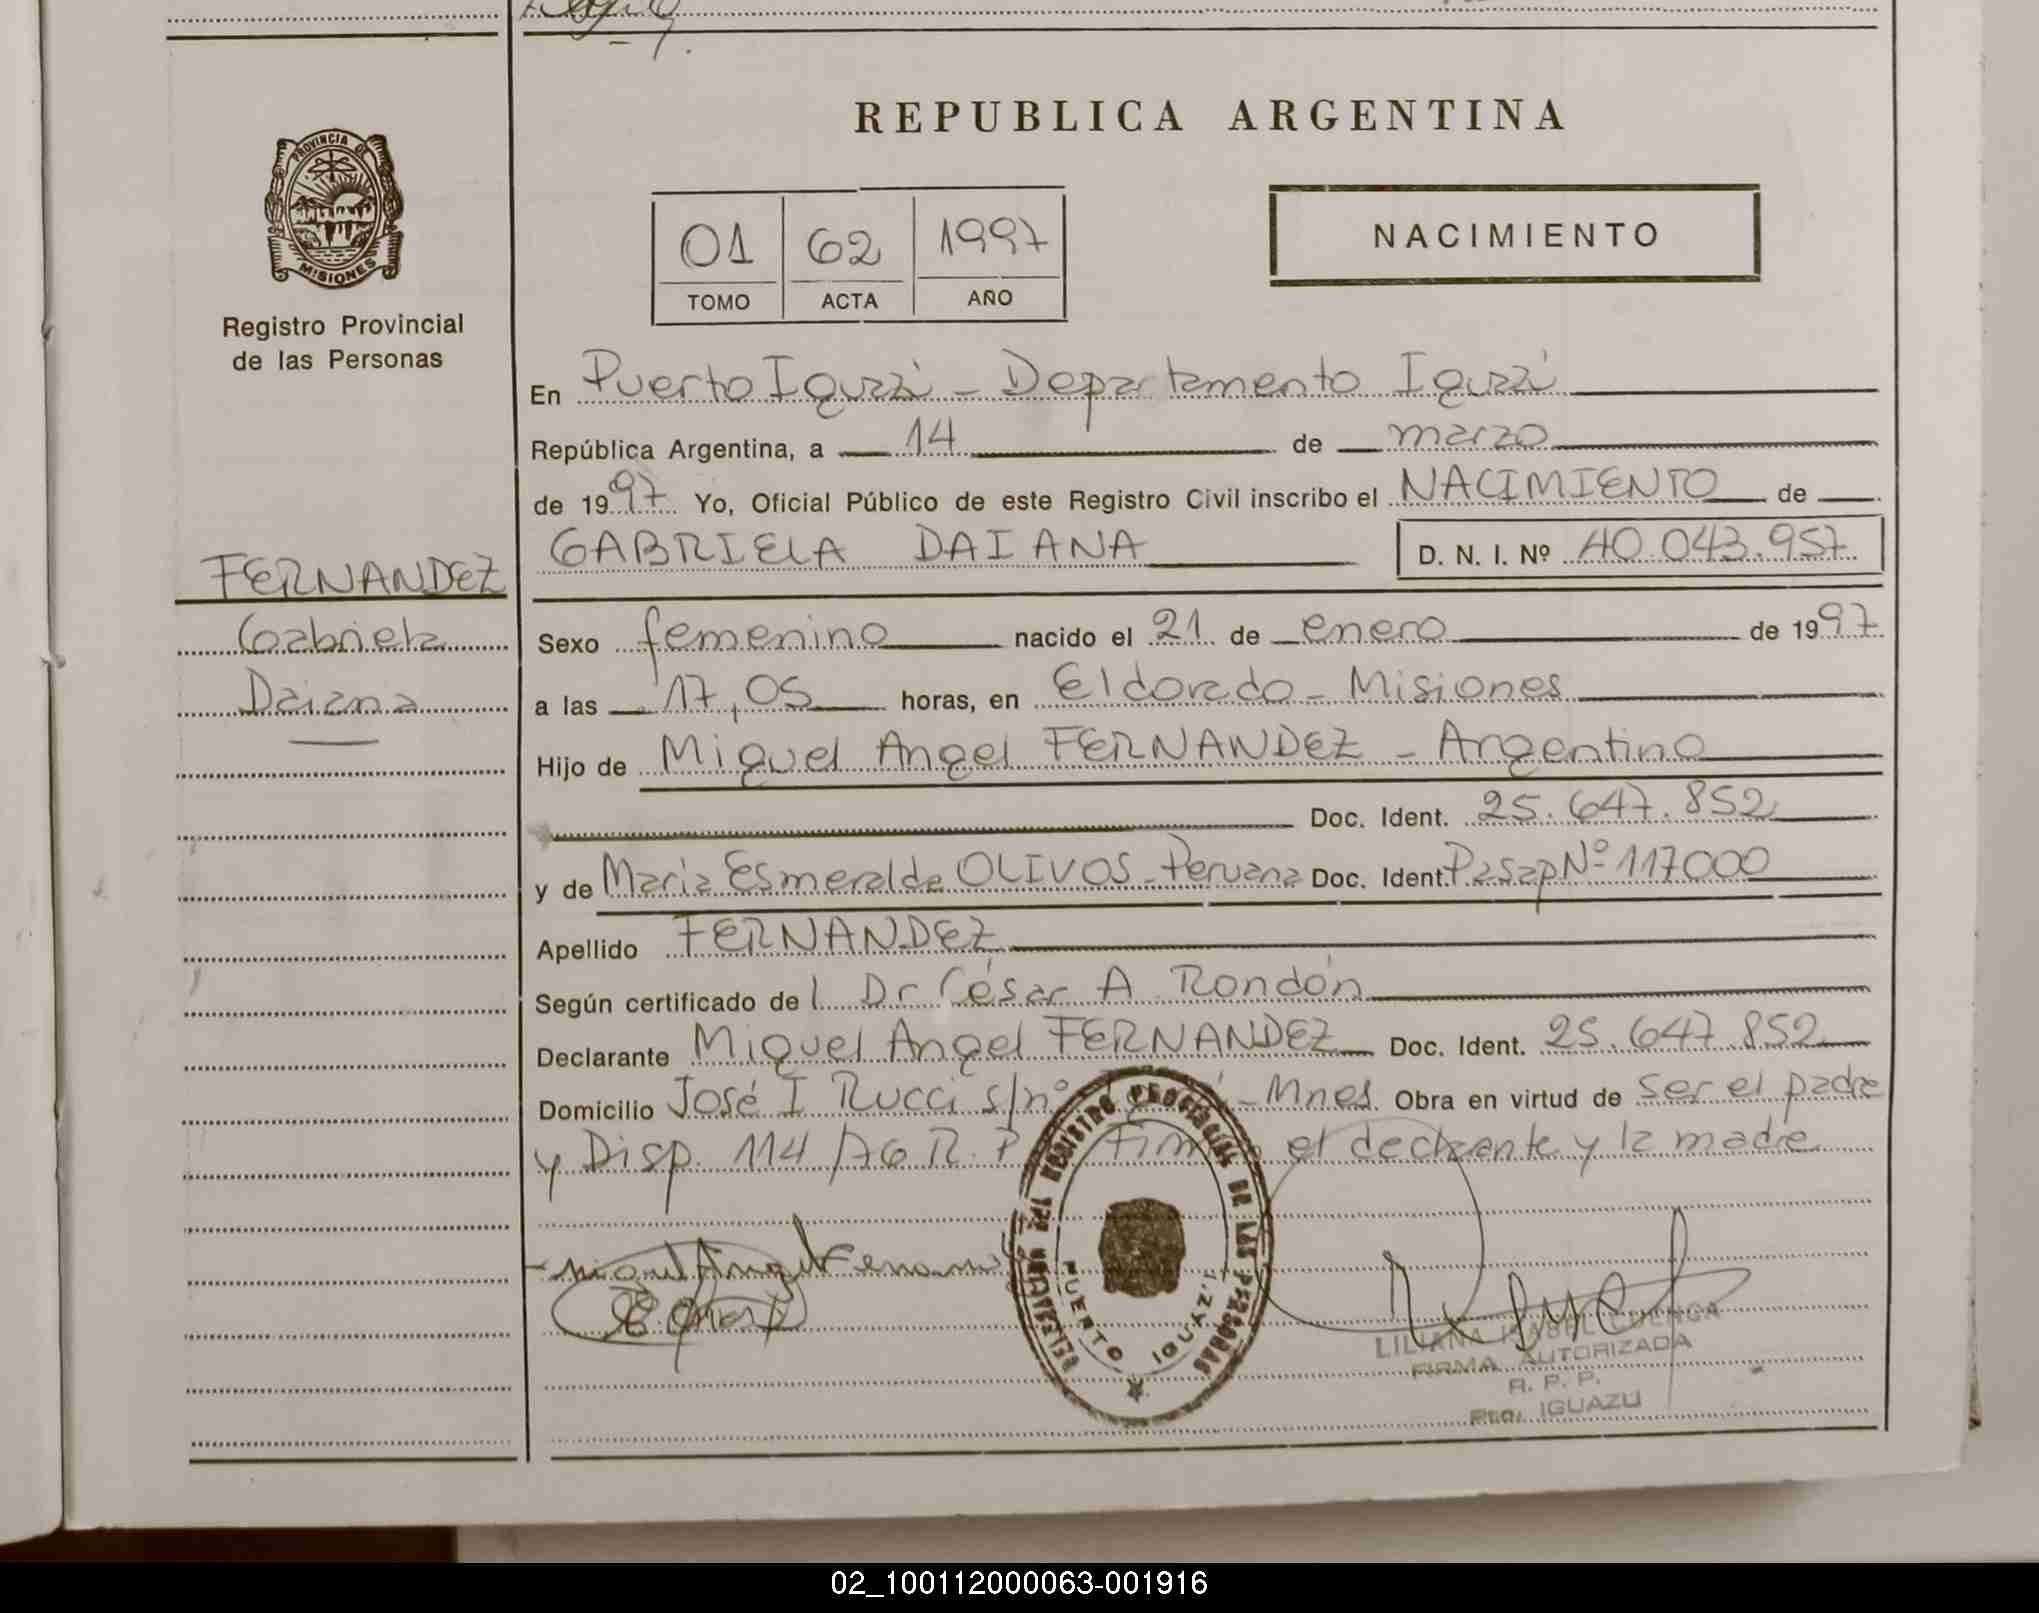 REPUBLICA ARGENTINA
PROVINCIA DE
MISIONES
Registro Provincial
de las Personas
01 62 1997
TOMO ACTA AÑO
NACIMIENTO
En Puerto Iguazú - Departamento Iguazú
República Argentina, a 14 de marzo
de 1997 Yo, Oficial Público de este Registro Civil inscribo el NACIMIENTO de
GABRIELA DAIANA D. N. I. Nº 40.043.957
FERNANDEZ
Gabriela
Daiana
Sexo femenino nacido el 21 de enero de 1997
a las 17,05 horas, en Eldorado - Misiones
Hijo de Miguel Angel FERNANDEZ - Argentino
Doc. Ident. 25.647.852
y de Maria Esmeralda OLIVOS - Peruana Doc. Ident. Pasap Nº 117000
Apellido FERNANDEZ
Según certificado del Dr César A Rondón
Declarante Miguel Angel FERNANDEZ Doc. Ident. 25.647.852
Domicilio José I Rucci s/nº - Mnes Obra en virtud de ser el padre
y Disp. 114/76 R. P. el declarante y la madre
Miguel Angel
DELEGACION DEL REGISTRO PROVINCIAL DE LAS PERSONAS
PUERTO IGUAZU
LILIANA ISABEL CUENCA
FIRMA AUTORIZADA
R. P. P.
Pto. IGUAZU
02_100112000063-001916